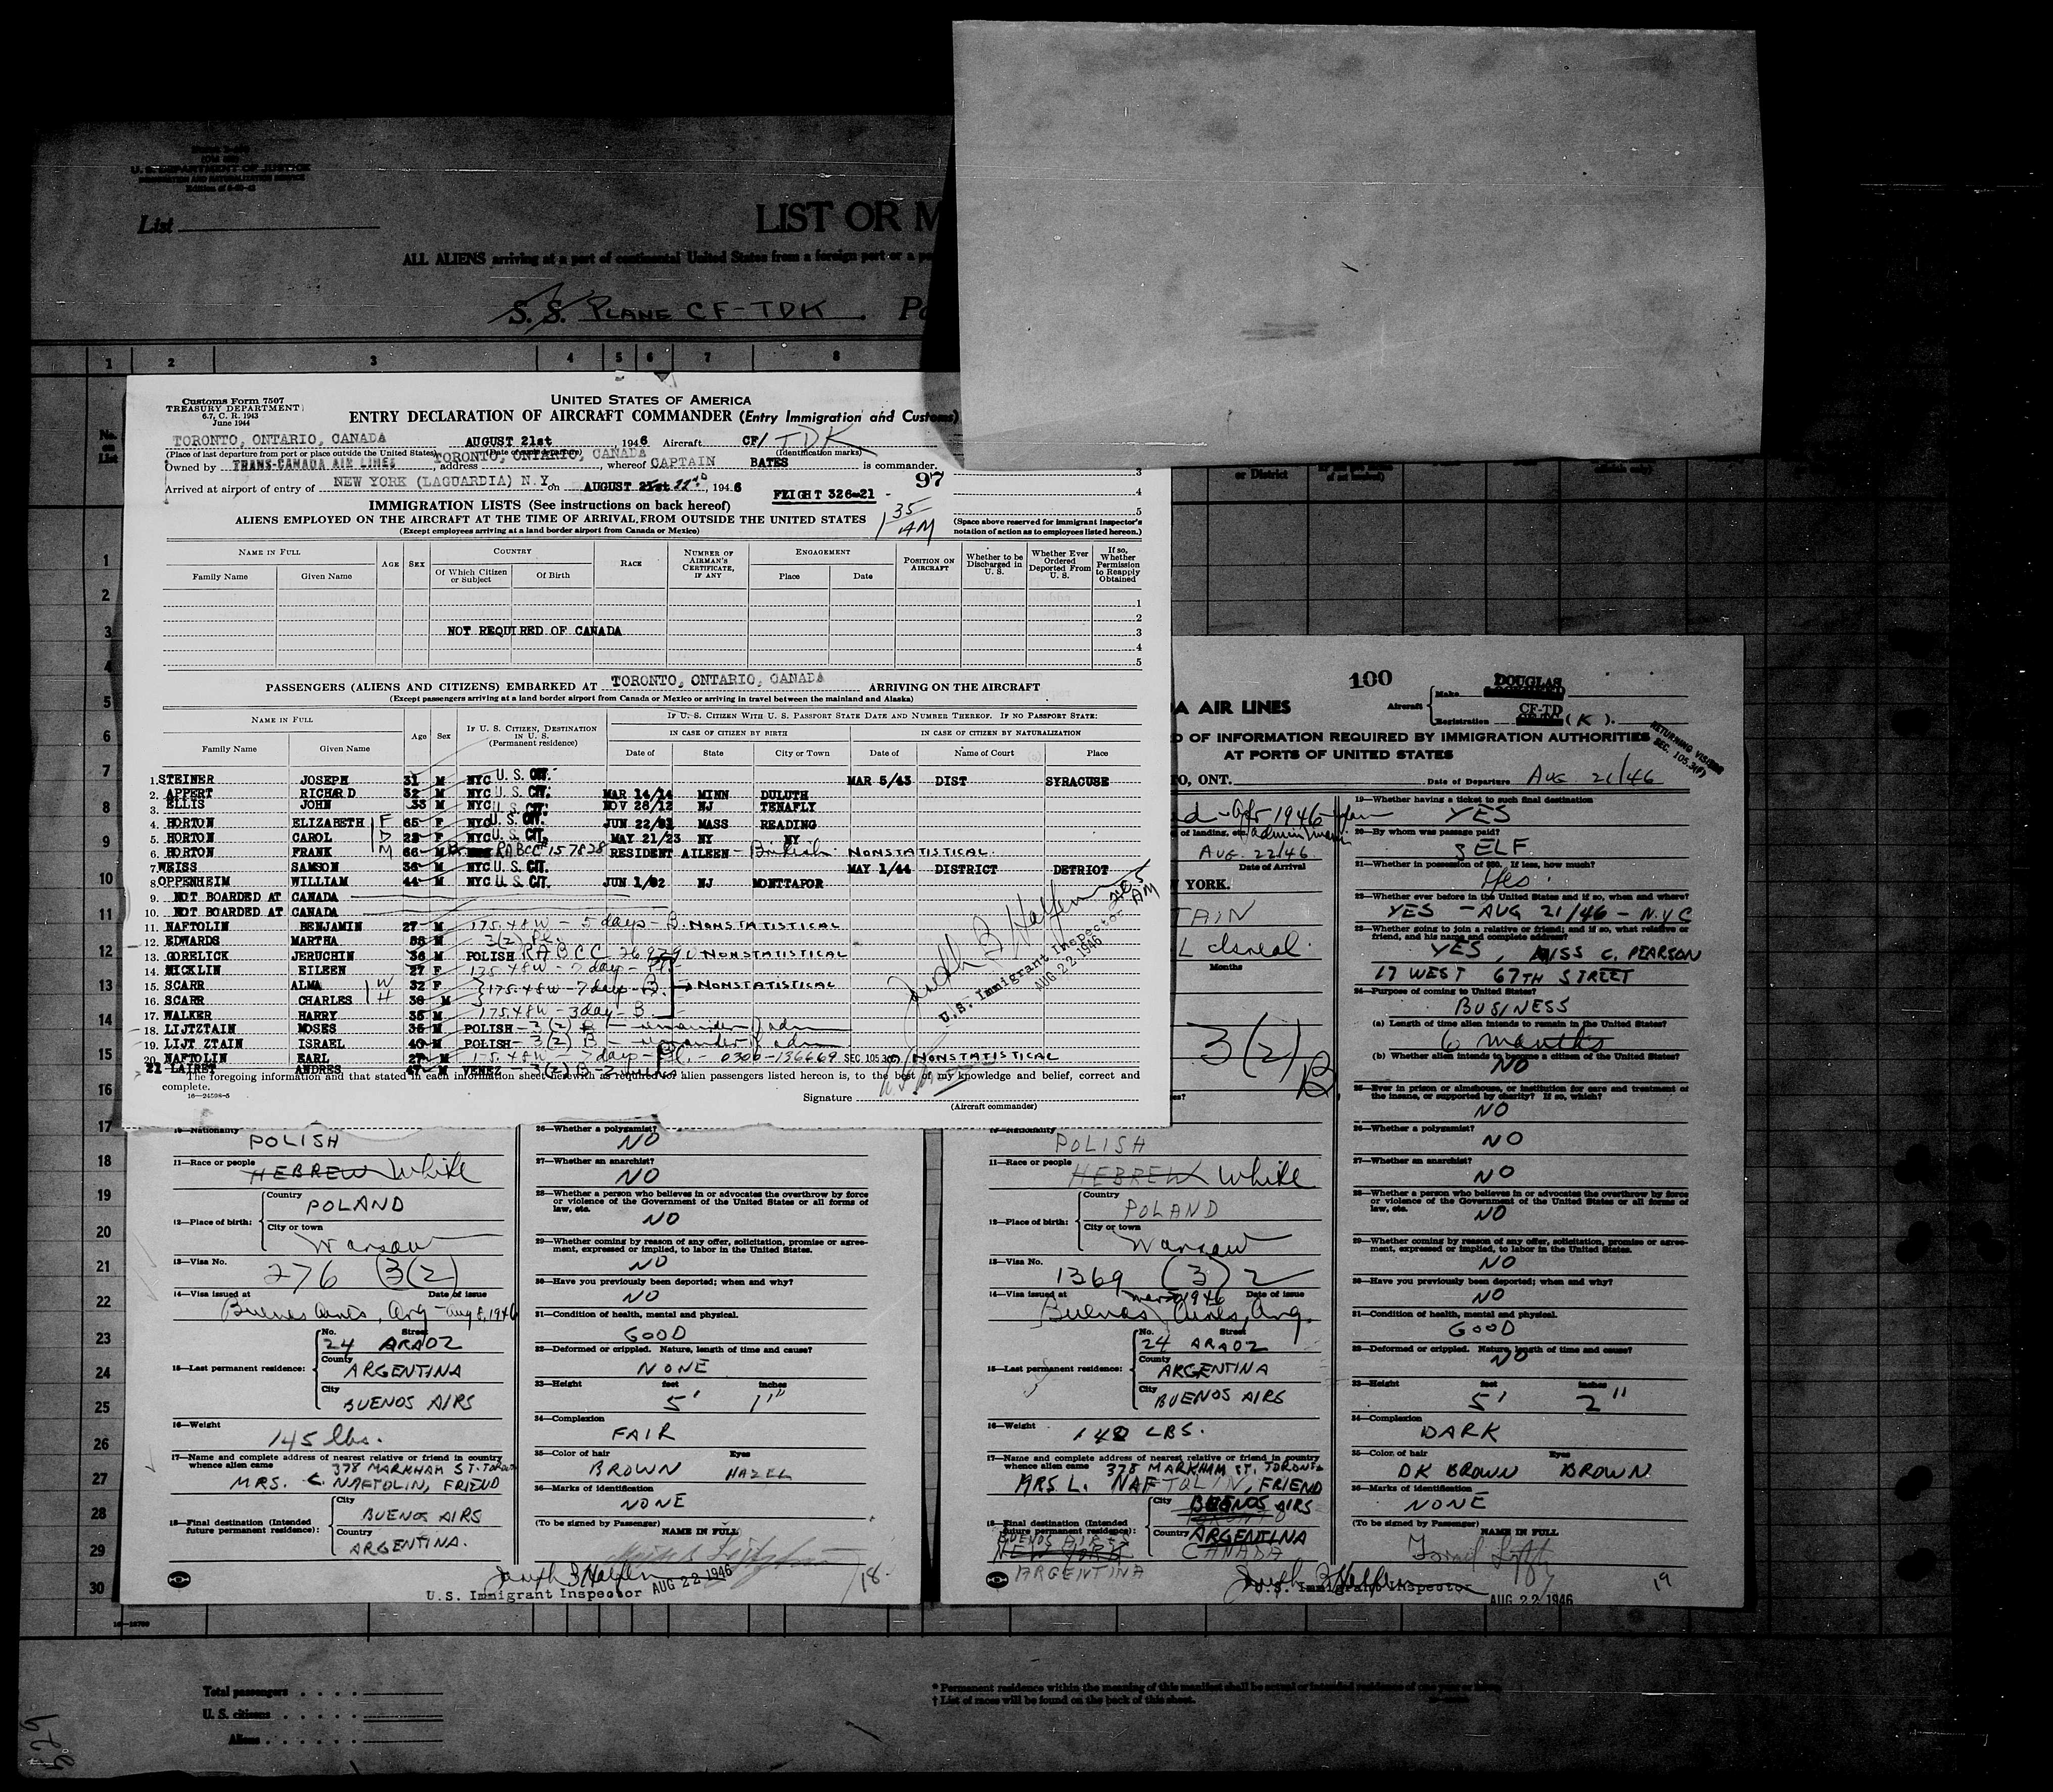 U. S. DEPARTMENT OF JUSTICE
IMMIGRATION AND NATURALIZATION SERVICE
List
LIST OR M
ALL ALIENS arriving at a port of continental United States from a foreign port or a p
S. S. PLANE CF-TDK
1 2 3 4 5 6 7 8
No. on List
Customs Form 7507
TREASURY DEPARTMENT
6.7, C. R. 1943
June 1944
UNITED STATES OF AMERICA
ENTRY DECLARATION OF AIRCRAFT COMMANDER (Entry Immigration and Customs)
TORONTO, ONTARIO, CANADA AUGUST 21st , 1946 Aircraft CF/ TDK
(Place of last departure from port or place outside the United States) (Date of such departure) (Identification marks)
Owned by TRANS-CANADA AIR LINES , address TORONTO, ONTARIO, CANADA , whereof CAPTAIN BATES is commander.
Arrived at airport of entry of NEW YORK (LAGUARDIA) N.Y. on AUGUST 21st 22nd, 1946 FLIGHT 326-21
97
1 35 AM
3
4
5
IMMIGRATION LISTS (See instructions on back hereof)
ALIENS EMPLOYED ON THE AIRCRAFT AT THE TIME OF ARRIVAL FROM OUTSIDE THE UNITED STATES
(Except employees arriving at a land border airport from Canada or Mexico)
(Space above reserved for immigrant inspector's notation of action as to employees listed hereon.)
NAME IN FULL
Family Name Given Name
AGE SEX
COUNTRY
Of Which Citizen or Subject Of Birth
RACE
NUMBER OF AIRMAN'S CERTIFICATE, IF ANY
ENGAGEMENT
Place Date
POSITION ON AIRCRAFT
Whether to be Discharged in U. S.
Whether Ever Ordered Deported From U. S.
If so, Whether Permission to Reapply Obtained
1
2
NOT REQUIRED OF CANADA 3
4
5
PASSENGERS (ALIENS AND CITIZENS) EMBARKED AT TORONTO, ONTARIO, CANADA ARRIVING ON THE AIRCRAFT
(Except passengers arriving at a land border airport from Canada or Mexico or arriving in travel between the mainland and Alaska)
NAME IN FULL
Family Name Given Name
Age Sex
IF U. S. CITIZEN, DESTINATION IN U. S. (Permanent residence)
IF U. S. CITIZEN WITH U. S. PASSPORT STATE DATE AND NUMBER THEREOF. IF NO PASSPORT STATE:
IN CASE OF CITIZEN BY BIRTH IN CASE OF CITIZEN BY NATURALIZATION
Date of State City or Town Date of Name of Court Place
1. STEINER JOSEPH 31 M NYC U. S. CIT. MAR 5/43 DIST SYRACUSE
2. APPERT RICHARD 32 M NYC U. S. CIT. MAR 14/14 MINN DULUTH
3. ELLIS JOHN 33 M NYC U. S. CIT. NOV 28/12 NJ TENAFLY
4. HORTON ELIZABETH F 65 F NYC U. S. CIT. JUN 22/81 MASS READING
5. HORTON CAROL D 23 F NYC U. S. CIT. MAY 21/23 NY NY
6. HORTON FRANK M 66 M RABCC# 157828 RESIDENT AILEEN - British NONSTATISTICAL.
7. WEISS SAMSON 36 M NYC U. S. CIT. MAY 1/44 DISTRICT DETRIOT
8. OPPENHEIM WILLIAM 44 M NYC U. S. CIT. JUN 1/02 NJ MONTTAFOR
9. NOT BOARDED AT CANADA
10. NOT BOARDED AT CANADA
11. NAFTOLIN BENJAMIN 27 M 175.48W - 5 days - B. NONSTATISTICAL
12. EDWARDS MARTHA M 3(2) Pl.
13. GORELICK JERUCHIN 36 M POLISH RABCC NONSTATISTICAL
14. MICKLIN EILEEN 27 F 175.48W - 7 day - Pl.
15. SCARR ALMA W 32 F 175.48W - 7 day - B. NONSTATISTICAL
16. SCARR CHARLES H 36 M
17. WALKER HARRY 35 M 175.48W - 3 day - B.
18. LIJTZTAIN MOSES 36 M POLISH - 3(2) B - remainder of adm
19. LIJT ZTAIN ISRAEL 40 M POLISH - 3(2) B - remainder of adm
20. NAFTOLIN EARL 27 M 175.48W - 7 days - Pl. - 0300-136669 SEC. 105.3(f) NONSTATISTICAL
21 LAIRET ANDRES 47 M VENEZ - 3(2) B
U.S. Immigrant Inspector
AUG 22 1946
The foregoing information and that stated in each information sheet herewith as required for alien passengers listed hereon is, to the best of my knowledge and belief, correct and complete.
16-24598-5
Signature
(Aircraft commander)
1
2
3
4
5
6
7
8
9
10
11
12
13
14
15
16
17
18
19
20
21
22
23
24
25
26
27
28
29
30
or District
100
Aircraft Make DOUGLAS
Registration CF-TD (K).
A AIR LINES
D OF INFORMATION REQUIRED BY IMMIGRATION AUTHORITIES
AT PORTS OF UNITED STATES
RETURNING VISITOR
SEC. 105.3(f)
TO, ONT. Date of Departure AUG 21/46
of landing, etc.
AUG. 22/46
Date of Arrival
YORK.
TAIN
Months
3(2) B.
19—Whether having a ticket to such final destination
YES
20—By whom was passage paid?
SELF
21—Whether in possession of $50. If less, how much?
Yes
22—Whether ever before in the United States and if so, when and where?
YES - AUG 21/46 - N.Y.C
23—Whether going to join a relative or friend; and if so, what relative or friend, and his name and complete address?
YES, MISS C. PEARSON
17 WEST 67TH STREET
24—Purpose of coming to United States?
BUSINESS
(a) Length of time alien intends to remain in the United States?
6 months
(b) Whether alien intends to become a citizen of United States?
NO
25—Ever in prison or almshouse, or institution for care and treatment of the insane, or supported by charity? If so, which?
NO
26—Whether a polygamist?
NO
27—Whether an anarchist?
NO
28—Whether a person who believes in or advocates the overthrow by force or violence of the Government of the United States or all forms of law, etc.
NO
29—Whether coming by reason of any offer, solicitation, promise or agreement, expressed or implied, to labor in the United States.
NO
30—Have you previously been deported; when and why?
NO
31—Condition of health, mental and physical.
GOOD
32—Deformed or crippled. Nature, length of time and cause?
NO
33—Height feet inches
5' 2"
34—Complexion
DARK
35—Color of hair Eyes
DK BROWN BROWN
36—Marks of identification
NONE
(To be signed by Passenger) NAME IN FULL
19
10—Nationality
POLISH
11—Race or people HEBREW White
12—Place of birth: Country
POLAND
City or town
Warsaw
13—Visa No.
276 (3(2)
14—Visa issued at Date of issue
Buenos Aires, Arg - Aug 8, 1946
15—Last permanent residence: No. Street
24 ARAOZ
County
ARGENTINA
City
BUENOS AIRS
16—Weight
145 lbs.
17—Name and complete address of nearest relative or friend in country whence alien came 378 MARKHAM ST. TORONTO
MRS. L. NAFTOLIN, FRIEND
18—Final destination (Intended future permanent residence): City
BUENOS AIRS
Country
ARGENTINA.
26—Whether a polygamist?
NO
27—Whether an anarchist?
NO
28—Whether a person who believes in or advocates the overthrow by force or violence of the Government of the United States or all forms of law, etc.
NO
29—Whether coming by reason of any offer, solicitation, promise or agreement, expressed or implied, to labor in the United States.
NO
30—Have you previously been deported; when and why?
NO
31—Condition of health, mental and physical.
GOOD
32—Deformed or crippled. Nature, length of time and cause?
NONE
33—Height feet inches
5' 1"
34—Complexion
FAIR
35—Color of hair Eyes
BROWN HAZEL
36—Marks of identification
NONE
(To be signed by Passenger) NAME IN FULL
U.S. Immigrant Inspector AUG 22 1946
18
10—Nationality
POLISH
11—Race or people HEBREW White
12—Place of birth: Country
POLAND
City or town
Warsaw
13—Visa No.
1369 (3) 2
14—Visa issued at 1946 Date of issue
Buenos Aires, Arg.
15—Last permanent residence: No. Street
24 ARAOZ
County
ARGENTINA
City
BUENOS AIRS
16—Weight
142 LBS.
17—Name and complete address of nearest relative or friend in country whence alien came 378 MARKHAM ST. TORONTO
MRS L. NAFTOLIN, FRIEND
18—Final destination (Intended future permanent residence): City BUENOS AIRS
TORONTO
Country ARGENTINA
CANADA
BUENOS AIRES
NEW YORK
ARGENTINA
U.S. Immigrant Inspector
AUG 22 1946
Total passengers
U. S. citizens
Aliens
* Permanent residence within the meaning of this manifest shall be actual or intended residence of one year or more.
† List of races will be found on the back of this sheet.